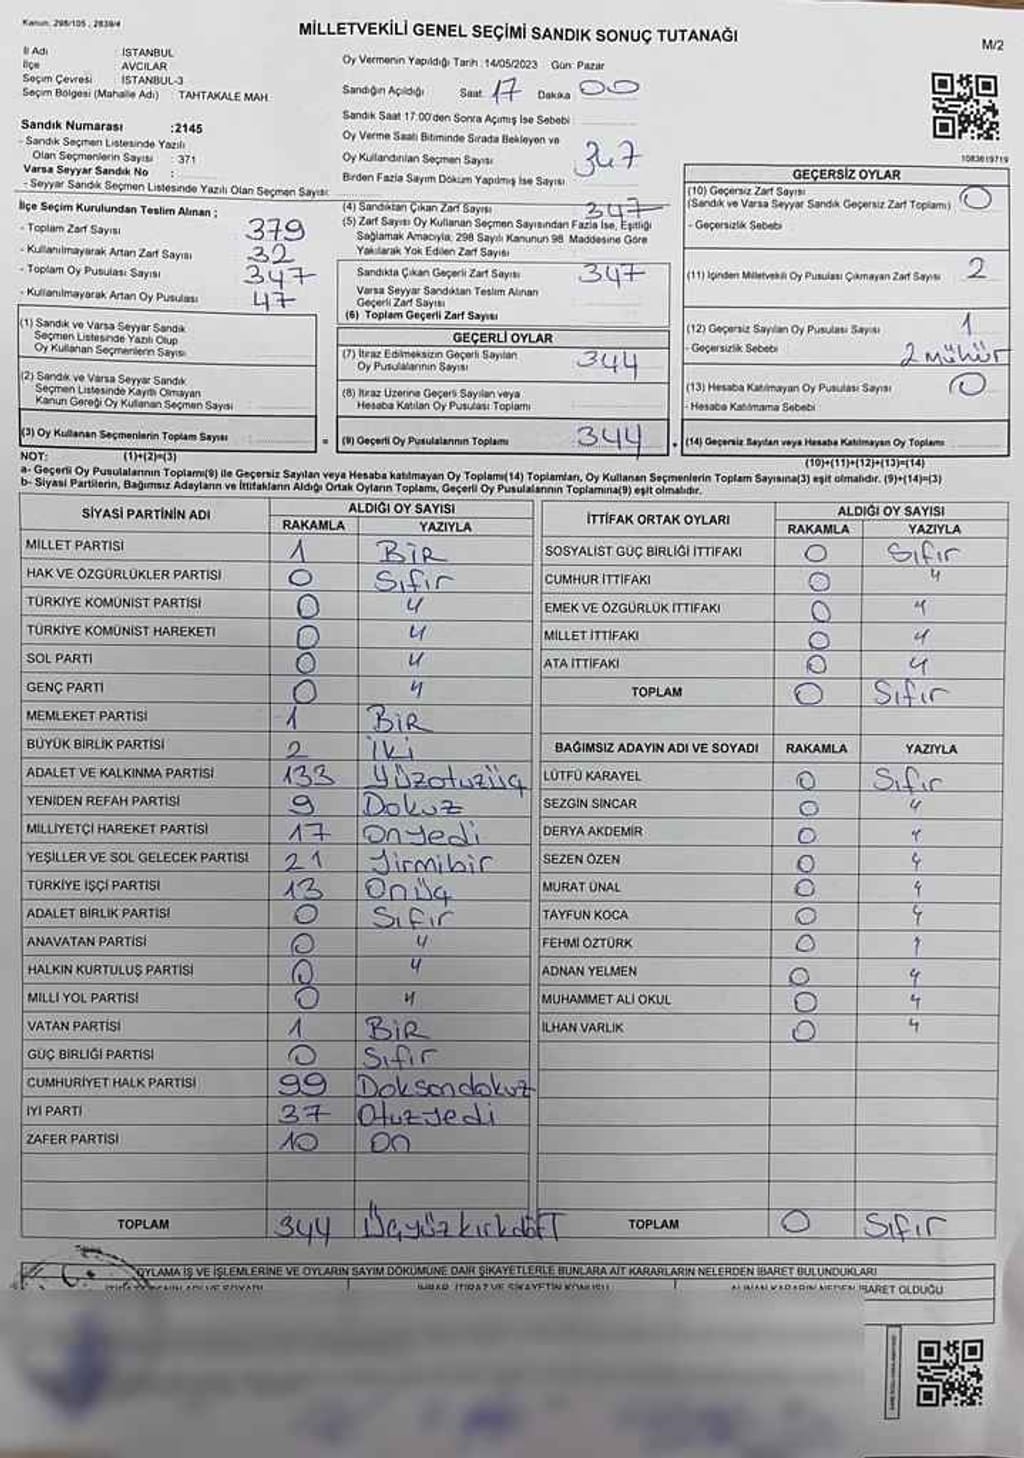 Kanun: 298/105 ; 2839/4
MİLLETVEKİLİ GENEL SEÇİMİ SANDIK SONUÇ TUTANAĞI
M/2
İl Adı : İSTANBUL
İlçe : AVCILAR
Seçim Çevresi : İSTANBUL-3
Seçim Bölgesi (Mahalle Adı) : TAHTAKALE MAH.
Sandık Numarası :2145
- Sandık Seçmen Listesinde Yazılı
Olan Seçmenlerin Sayısı : 371
Varsa Seyyar Sandık No :
- Seyyar Sandık Seçmen Listesinde Yazılı Olan Seçmen Sayısı:
Oy Vermenin Yapıldığı Tarih :14/05/2023 Gün: Pazar
Sandığın Açıldığı Saat 17 Dakika 00
Sandık Saat 17:00'den Sonra Açımış İse Sebebi
Oy Verme Saati Bitiminde Sırada Bekleyen ve
Oy Kullandırılan Seçmen Sayısı 347
Birden Fazla Sayım Döküm Yapılmış İse Sayısı
1083619719
İlçe Seçim Kurulundan Teslim Alınan ;
- Toplam Zarf Sayısı 379
- Kullanılmayarak Artan Zarf Sayısı 32
- Toplam Oy Pusulası Sayısı 347
- Kullanılmayarak Artan Oy Pusulası 47
(1) Sandık ve Varsa Seyyar Sandık
Seçmen Listesinde Yazılı Olup
Oy Kullanan Seçmenlerin Sayısı
(2) Sandık ve Varsa Seyyar Sandık
Seçmen Listesinde Kayıtlı Olmayan
Kanun Gereği Oy Kullanan Seçmen Sayısı
(3) Oy Kullanan Seçmenlerin Toplam Sayısı
(4) Sandıktan Çıkan Zarf Sayısı 347
(5) Zarf Sayısı Oy Kullanan Seçmen Sayısından Fazla İse, Eşitliği
Sağlamak Amacıyla; 298 Sayılı Kanunun 98. Maddesine Göre
Yakılarak Yok Edilen Zarf Sayısı
Sandıkta Çıkan Geçerli Zarf Sayısı 347
Varsa Seyyar Sandıktan Teslim Alınan
Geçerli Zarf Sayısı
(6) Toplam Geçerli Zarf Sayısı
GEÇERLİ OYLAR
(7) İtiraz Edilmeksizin Geçerli Sayılan
Oy Pusulalarının Sayısı 344
(8) İtiraz Üzerine Geçerli Sayılan veya
Hesaba Katılan Oy Pusulası Toplamı
= (9) Geçerli Oy Pusulalarının Toplamı 344
GEÇERSİZ OYLAR
(10) Geçersiz Zarf Sayısı
(Sandık ve Varsa Seyyar Sandık Geçersiz Zarf Toplamı) 0
- Geçersizlik Sebebi
(11) İçinden Milletvekili Oy Pusulası Çıkmayan Zarf Sayısı 2
(12) Geçersiz Sayılan Oy Pusulası Sayısı 1
- Geçersizlik Sebebi 2 mühür
(13) Hesaba Katılmayan Oy Pusulası Sayısı 0
- Hesaba Katılmama Sebebi
(14) Geçersiz Sayılan veya Hesaba Katılmayan Oy Toplamı
NOT: (1)+(2)=(3) (10)+(11)+(12)+(13)=(14)
a- Geçerli Oy Pusulalarının Toplamı(9) ile Geçersiz Sayılan veya Hesaba katılmayan Oy Toplamı(14) Toplamları, Oy Kullanan Seçmenlerin Toplam Sayısına(3) eşit olmalıdır. (9)+(14)=(3)
b- Siyasi Partilerin, Bağımsız Adayların ve İttifakların Aldığı Ortak Oyların Toplamı, Geçerli Oy Pusulalarının Toplamına(9) eşit olmalıdır.
SİYASİ PARTİNİN ADI ALDIĞI OY SAYISI
RAKAMLA YAZIYLA
MİLLET PARTİSİ 1 Bir
HAK VE ÖZGÜRLÜKLER PARTİSİ 0 Sıfır
TÜRKİYE KOMÜNİST PARTİSİ 0 "
TÜRKİYE KOMÜNİST HAREKETİ 0 "
SOL PARTİ 0 "
GENÇ PARTİ 0 "
MEMLEKET PARTİSİ 1 Bir
BÜYÜK BİRLİK PARTİSİ 2 İki
ADALET VE KALKINMA PARTİSİ 133 Yüzotuzüç
YENİDEN REFAH PARTİSİ 9 Dokuz
MİLLİYETÇİ HAREKET PARTİSİ 17 Onyedi
YEŞİLLER VE SOL GELECEK PARTİSİ 21 Yirmibir
TÜRKİYE İŞÇİ PARTİSİ 13 Onüç
ADALET BİRLİK PARTİSİ 0 Sıfır
ANAVATAN PARTİSİ 0 "
HALKIN KURTULUŞ PARTİSİ 0 "
MİLLİ YOL PARTİSİ 0 "
VATAN PARTİSİ 1 Bir
GÜÇ BİRLİĞİ PARTİSİ 0 Sıfır
CUMHURİYET HALK PARTİSİ 99 Doksandokuz
İYİ PARTİ 37 Otuzyedi
ZAFER PARTİSİ 10 On
TOPLAM 344 Üçyüzkırkdört
İTTİFAK ORTAK OYLARI ALDIĞI OY SAYISI
RAKAMLA YAZIYLA
SOSYALİST GÜÇ BİRLİĞİ İTTİFAKI 0 Sıfır
CUMHUR İTTİFAKI 0 "
EMEK VE ÖZGÜRLÜK İTTİFAKI 0 "
MİLLET İTTİFAKI 0 "
ATA İTTİFAKI 0 "
TOPLAM 0 Sıfır
BAĞIMSIZ ADAYIN ADI VE SOYADI RAKAMLA YAZIYLA
LÜTFÜ KARAYEL 0 Sıfır
SEZGİN SİNCAR 0 "
DERYA AKDEMİR 0 "
SEZEN ÖZEN 0 "
MURAT ÜNAL 0 "
TAYFUN KOCA 0 "
FEHMİ ÖZTÜRK 0 "
ADNAN YELMEN 0 "
MUHAMMET ALİ OKUL 0 "
İLHAN VARLIK 0 "
TOPLAM 0 Sıfır
OYLAMA İŞ VE İŞLEMLERİNE VE OYLARIN SAYIM DÖKÜMÜNE DAİR ŞİKAYETLERLE BUNLARA AİT KARARLARIN NELERDEN İBARET BULUNDUKLARI
İHBAR, İTİRAZ VE ŞİKAYETİN KONUSU ALINAN KARARIN NEDEN İBARET OLDUĞU